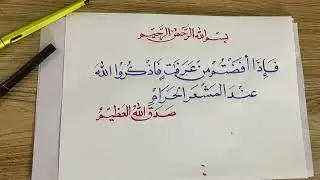 بسم الله الرحمن الرحيم
فَإِذَا أَفَضْتُم مِنْ عَرَفَتٍ فَاذْكُرُوا اللهَ
عِندَ المَشْعَرِ الحَرَامِ
صَدَقَ اللهُ العَظِيمُ